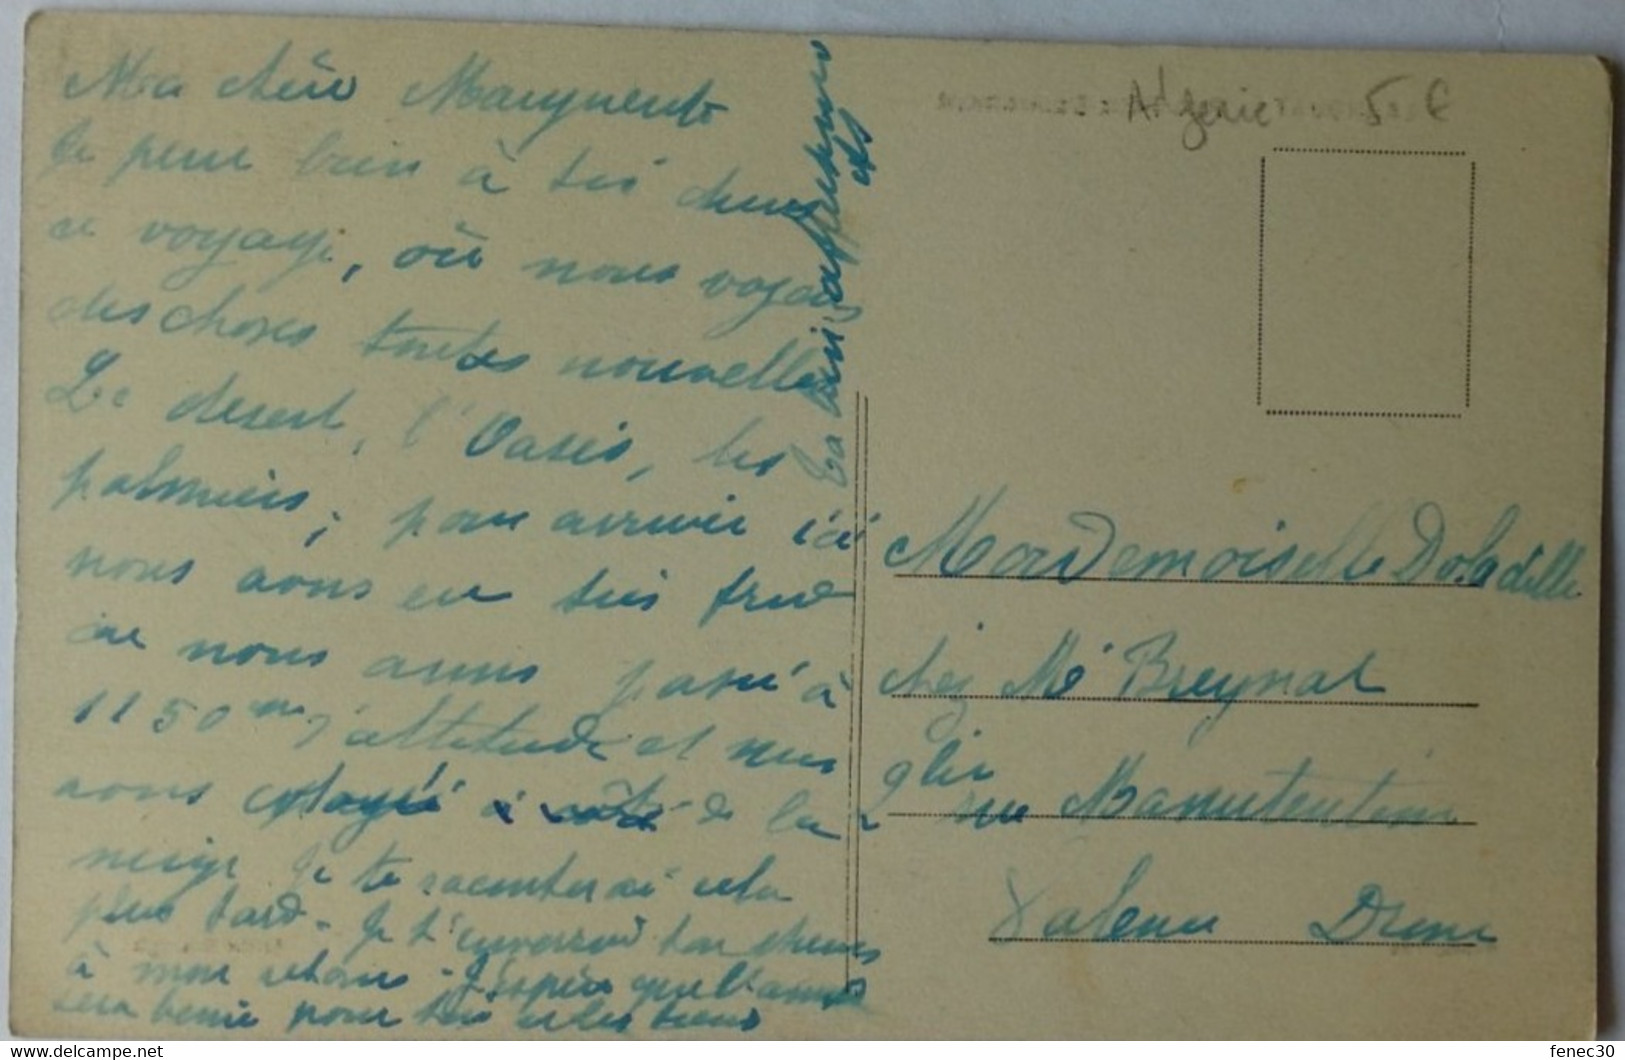 Ma chère Marguerite
Je pense bien à toi dans
ce voyage, où nous voyons
des choses toutes nouvelles
Le desert, l'Oasis, les
palmiers; pour arriver ici
nous avons eu très froid
car nous avons passé à
1150 m d'altitude et nous
avons voyagé à côté de la
neige Je te raconterai cela
plus tard - Je t'enverrai ton
à mon retour - J'espère que l'année
sera bonne pour toi et les tiens
Ta bien affectueuse
Algerie 5 €
Mademoiselle Doladille
chez Me Breynat
9 bis rue Manutention
Valence Drome
fenec30